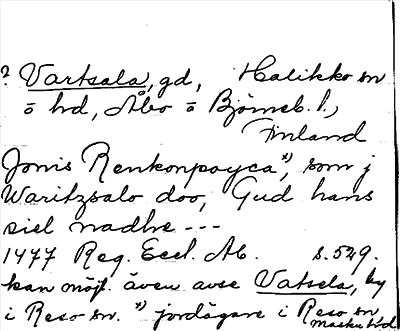 ? Vartsala, gd, Halikko sn
o hd, Åbo o Björneb. l.,
Finland
Jönis Renkonpoyca *), som j
Waritzsalo doo, Gud hans
siel nadhe ---
1477 Reg. Eccl. Ab. s. 529.
kan möjl. även avse Vatsela, by
i Reso sn. *) jordägare i Reso sn
Masku hd